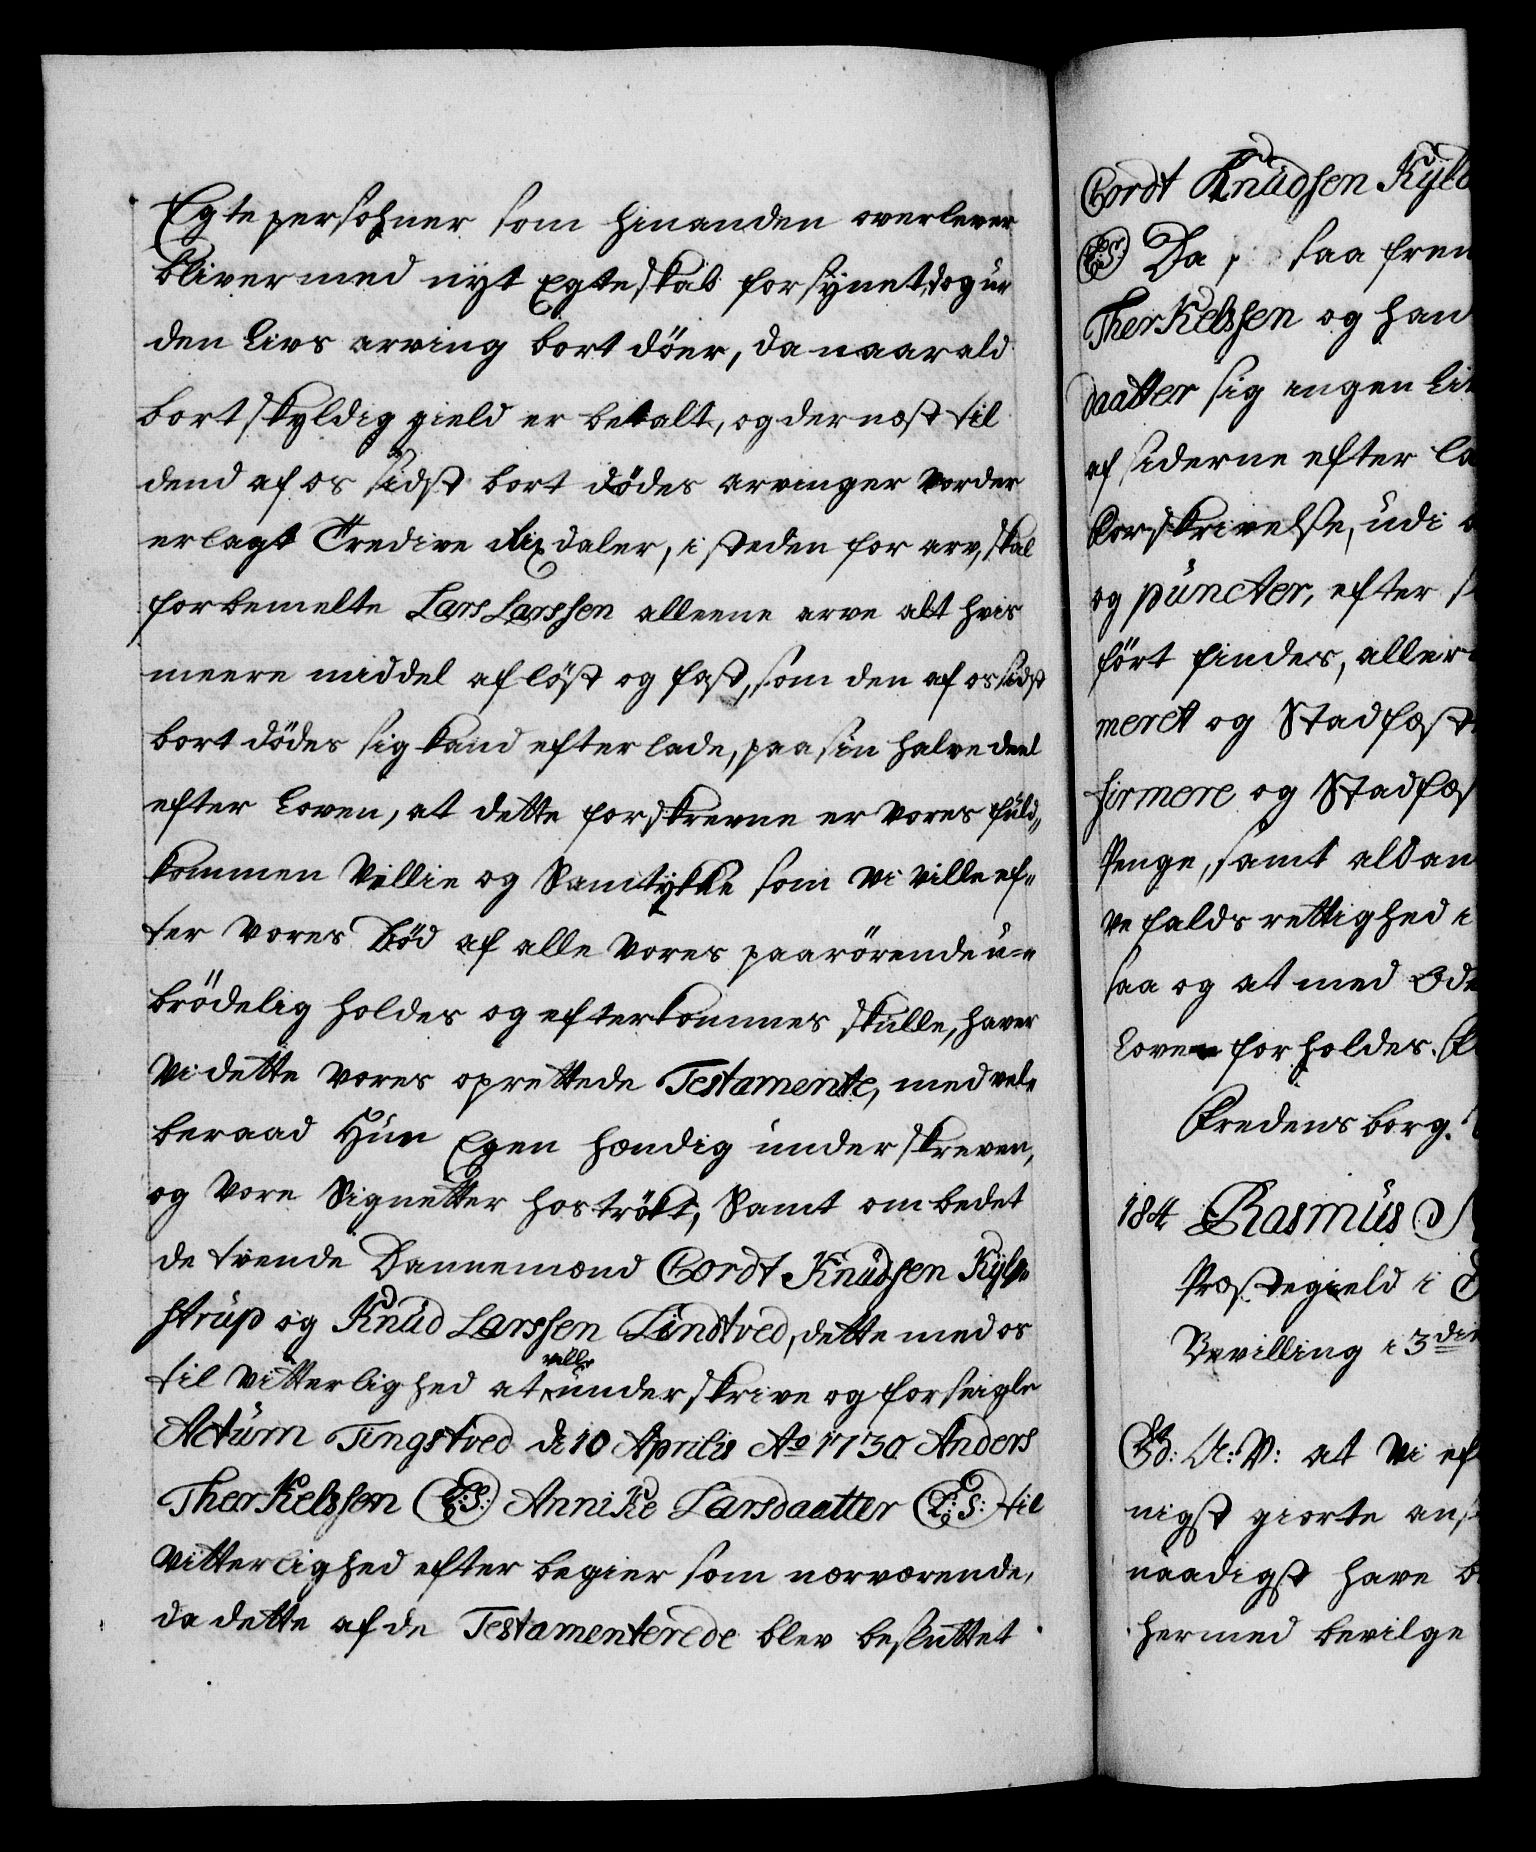 Egte persohner som hinanden overlever
bliver med nyt Egteskab forsynet, dog uden
den Livs arving bort döer, da naar ald
bortskyldig gield er betalt, og dernæst til
dend af os sidst bort dödes arvinger vorder
erlagt Tredive Rixdaler, i steden for arv, skal
forbemelte Lars Larssen alleene arve alt hvis
meere middel af löst og fast, som den af os sidst
bort dödes sig kand efterlade, paa sin halve deel
efter Loven, at dette forskrevne er vores fuld„
kommen Villie og Samtykke som vi ville ef„
ter vores Död af alle vores paarörende u=
brödelig holdes og efterkommes skulle, haver
vi dette vores oprettede Testamente, med vel„
beraad Hu Egen hændig underskreven,
og vore Signetter hoströkt, Samt ombedet
de tvende Dannemænd Cordt Knudsen Kyl„
strup og Knud Larssen Lindtved, dette med os
til Vitterlighed at ville underskrive og forseigle
Actum Tingstved d 10 Aprilis Ao 1730 Anders
Therkelssen (L:S:) Annike Larsdaatter (L:S:) til
vitterlighed efter begier som nærværende,
da dette af de Testamenterede blev besluttet
Cordt Knudsen Kyl
(L:S:) Da saa frem
Therkelssen og han
daatter sig ingen Li
af siderne efter la
forskrivelse, udi
og puncter, efter
fört findes, aller
meret og Stadfæst
firmere og Stadfæs
Penge, samt ald an
ve falds rettighed i
saa og at med Ode
Loven forholdes.
Fredensborg.
184 Rasmus
Præstegield i
Bevilling i 3die
G: A: V: at Vi ef
nigst giorte ans
naadigst have b
hermed bevilge